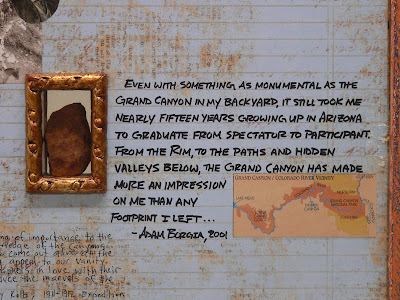 EVEN WITH SOMETHING AS MONUMENTAL AS THE
GRAND CANYON IN MY BACKYARD, IT STILL TOOK ME
NEARLY FIFTEEN YEARS GROWING UP IN ARIZONA
TO GRADUATE FROM SPECTATOR TO PARTICIPANT.
FROM THE RIM, TO THE PATHS AND HIDDEN
VALLEYS BELOW, THE GRAND CANYON HAS MADE
MORE AN IMPRESSION
ON ME THAN ANY
FOOTPRINT I LEFT...
- ADAM BORGIA, 2001
GRAND CANYON / COLORADO RIVER VICINITY
importance to the
of the Canyons
come out above all the
appeal to our vanity.
in love with their
the marvels of the
1911-1912 Expedition